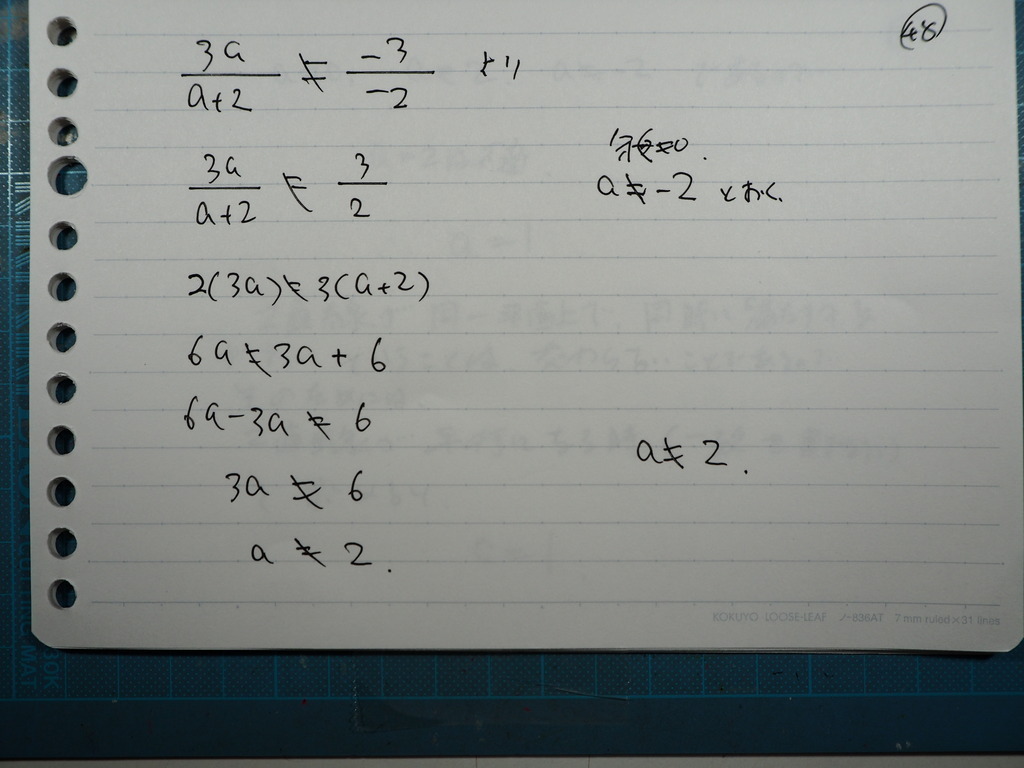 48
3a/(a+2) ≠ -3/-2 より
分母≠0.
3a/(a+2) ≠ 3/2
a≠-2 とおく.
2(3a)≠3(a+2)
6a≠3a+6
6a-3a≠6
a≠2.
3a≠6
a≠2.
KOKUYO LOOSE-LEAF ノ-836AT 7mm ruled×31 lines